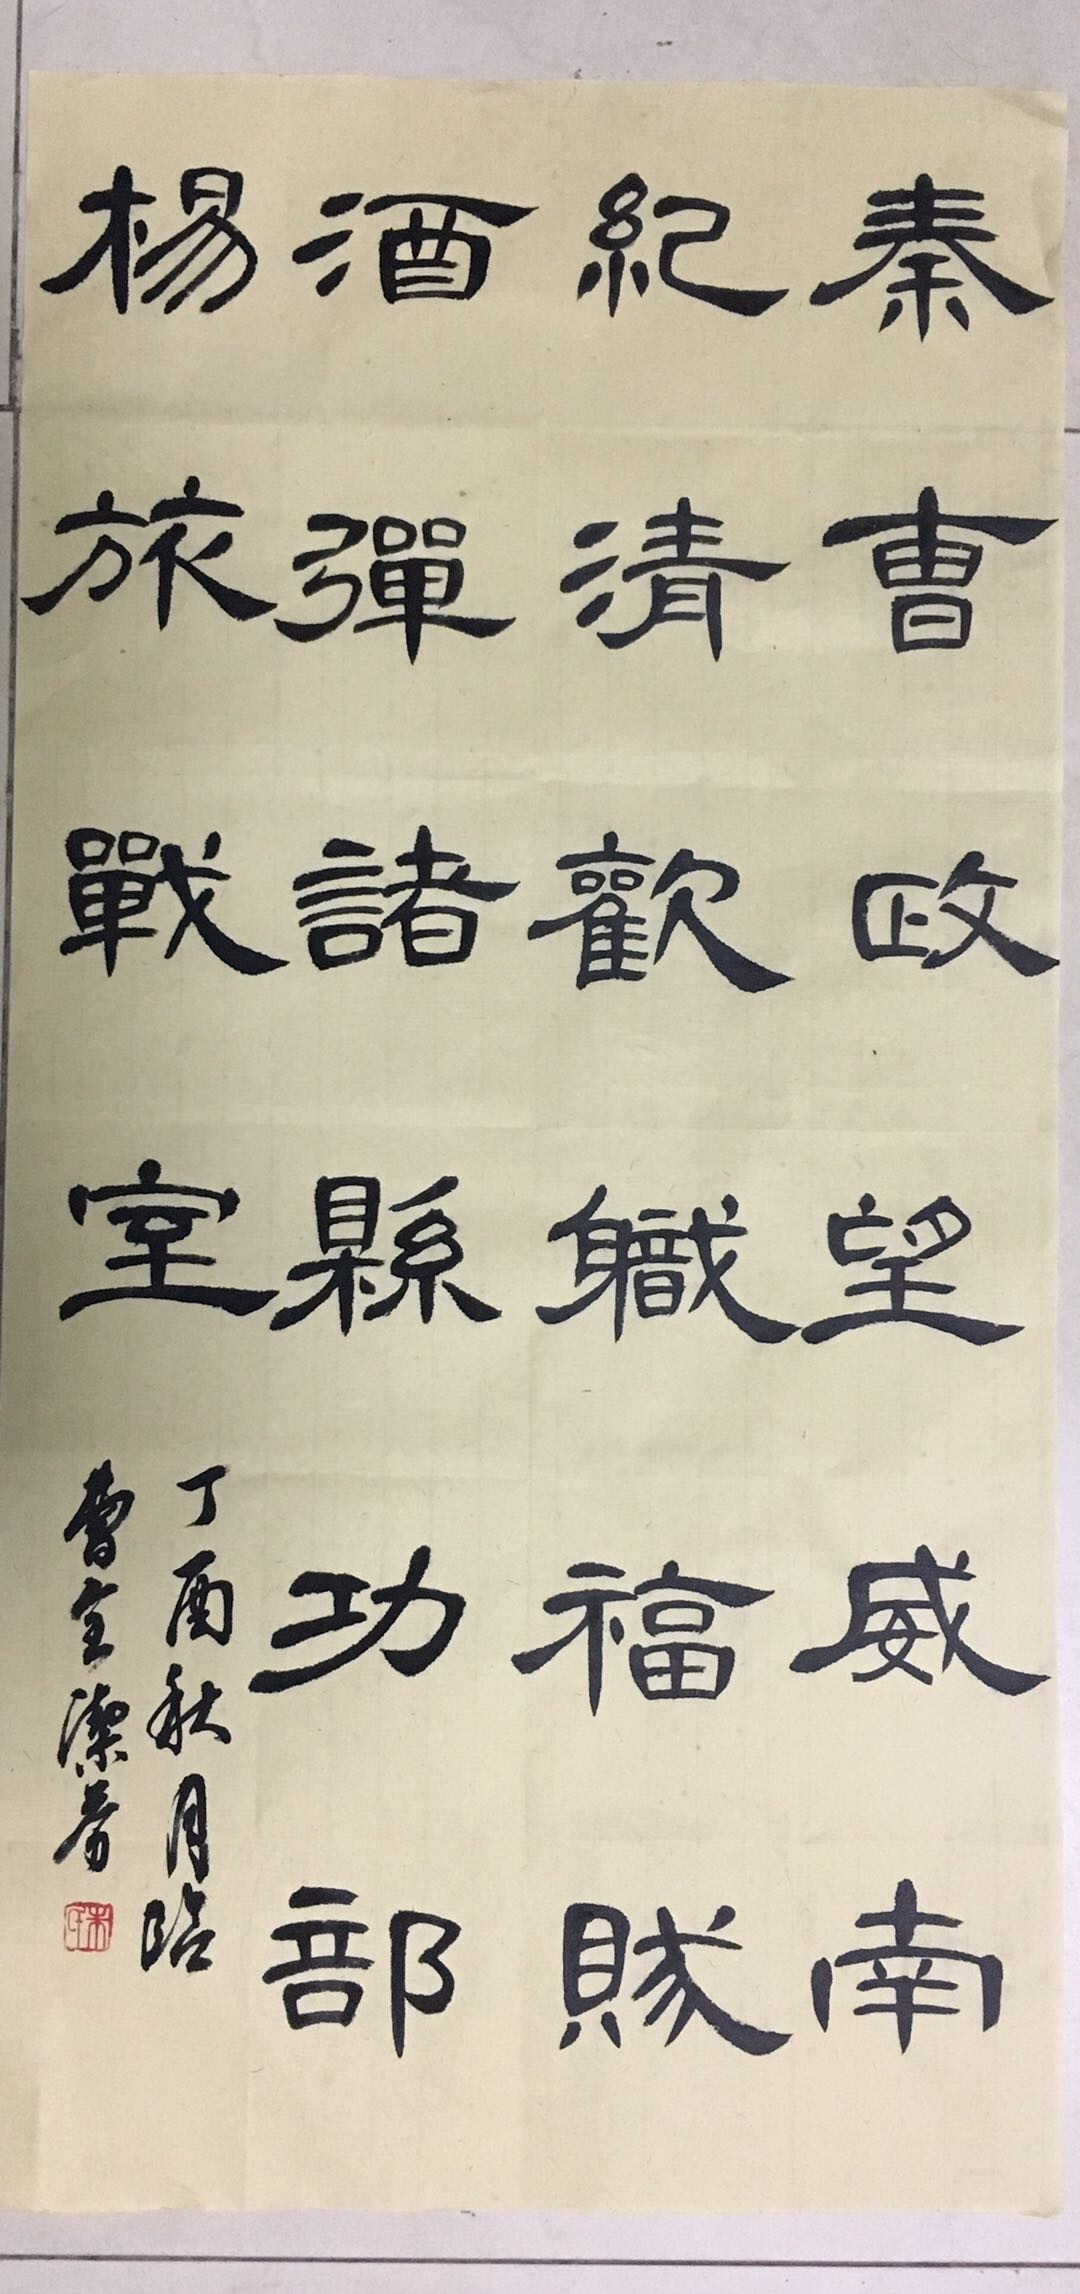 秦曺政望威南
紀清歡職福賊
酒彈諸縣功部
楊旅戰室
丁酉秋月臨
曹全潔芳